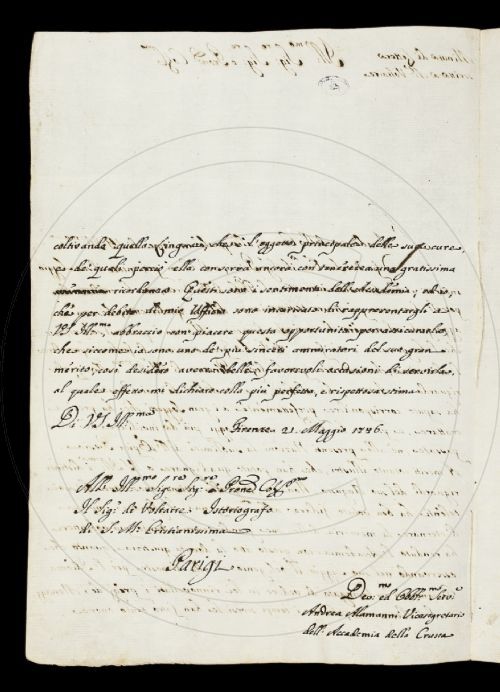 coltivando quella Lingua, che è l'oggetto principale delle sue cure,
de' quali perciò ella conserva ancora con tenerezza una gratissima
ricordanza. Questi sono i sentimenti dell'Accademia; ed io,
che per debito di mio Uffizio sono incaricato di rappresentargli a
VS. Ill.ma, abbraccio con piacere questa opportunità per assicurarla,
che siccome io sono uno de' più sinceri ammiratori del suo gran
merito, così desidero avere delle favorevoli occasioni di servirla,
al quale effetto mi dichiaro colla più perfetta, e rispettosa stima
Di VS. Ill.ma
Firenze 21. Maggio 1746.
All' Ill.mo Sig.re Sig.re e Prone Col.mo
Il Sig. di Voltaire Istoriografo
di S. M. Cristianissima
Parigi
Dev.mo ed Obb.mo Serv.e
Andrea Alamanni Vicesegretario
dell' Accademia della Crusca